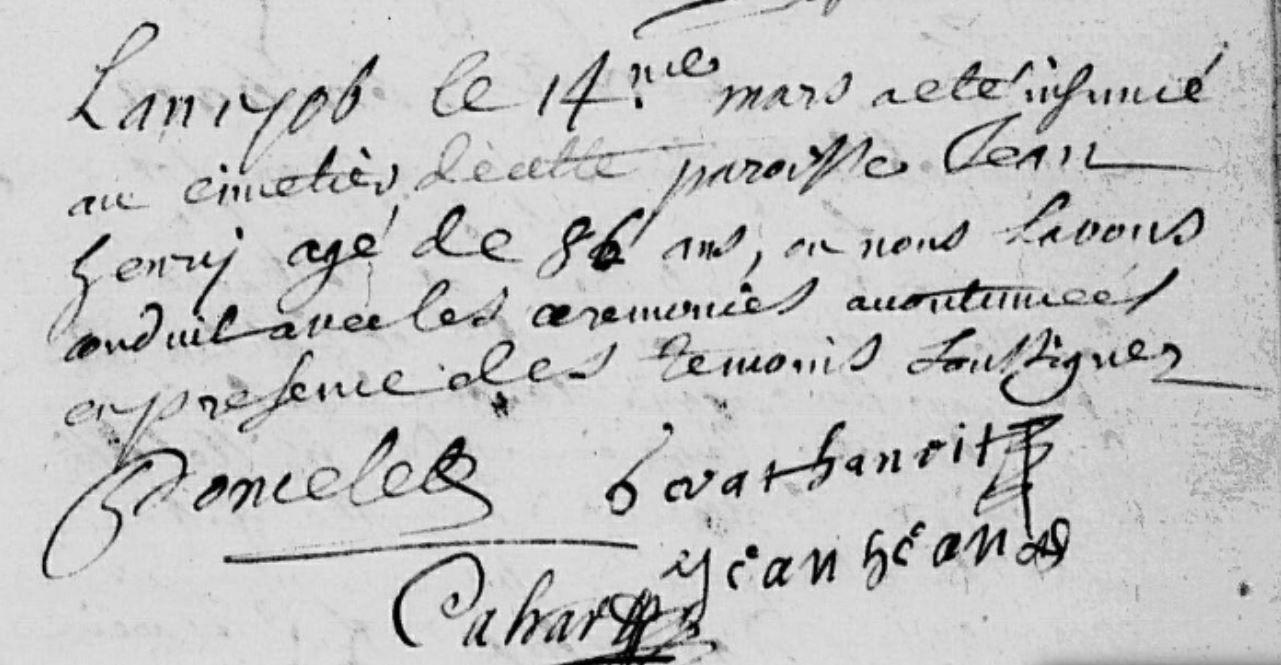 Lan 1706 le 14.me mars a eté inhumé
au cimetier de cette paroisse Jean
henry agé de 86 ans, ou nous Lavons
conduit avec les ceremonies accoutumeés
en presence des temoins soussignez
Doncelet
yean hean
Cahart